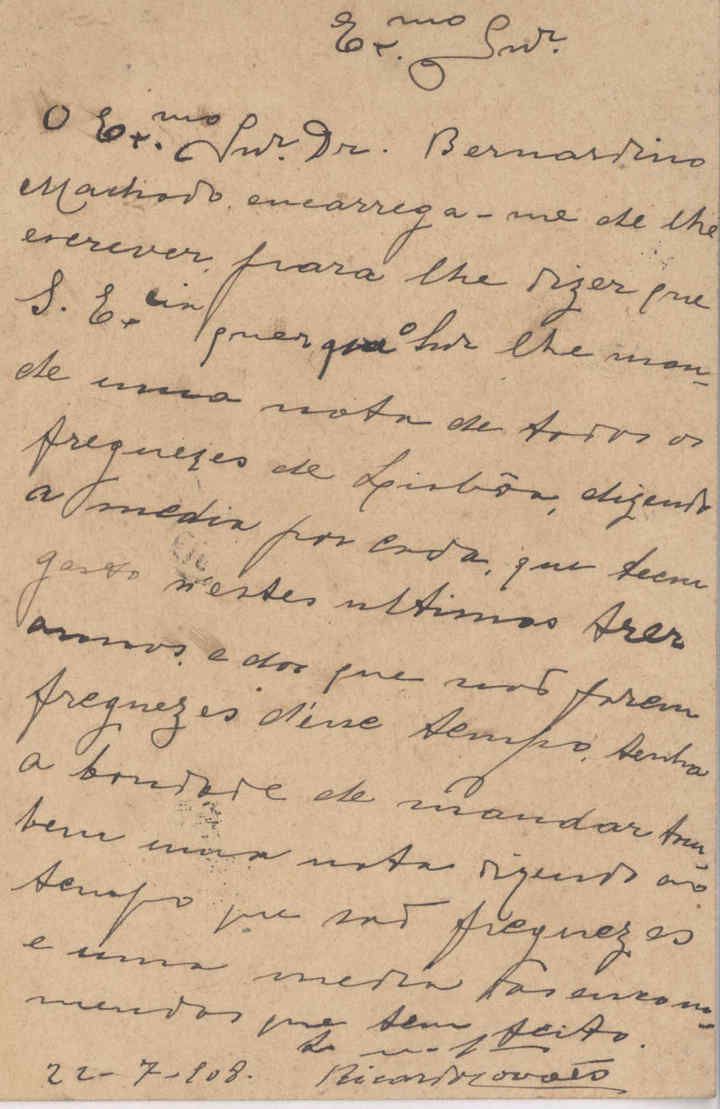 Ex.mo Snr.
O Ex.mo Snr. Dr. Bernardino
Machado, encarrega-me de lhe
escrever, para lhe dizer que
S. Ex.cia quer que o Snr lhe man-
de uma nota de todos os
freguezes de Lisbôa, dizendo
a media por cada, que teem
gasto n'estes ultimos trez
annos, e dos que não forem
freguezes d'esse tempo, tenha
a bondade de mandar tam-
bem uma nota dizendo ao
tempo que são freguezes
e uma media das encom-
mendas que tem feito.
22-7-908. Ricardo